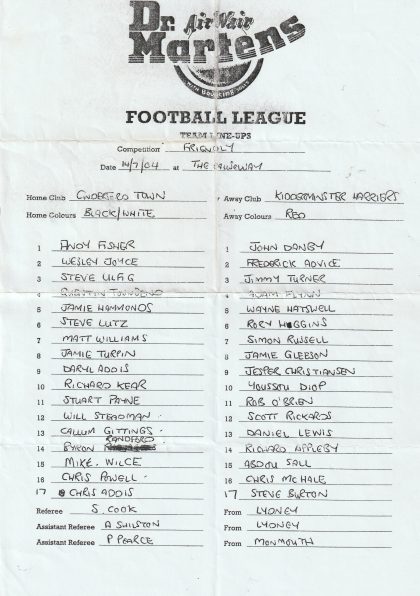 Dr. Air Wair
Martens
With Bouncing Soles
FOOTBALL LEAGUE
TEAM LINE-UPS
Competition FRIENDLY
Date 14/7/04 at THE CAUSEWAY
Home Club CINDERFORD TOWN Away Club KIDDERMINSTER HARRIERS
Home Colours BLACK/WHITE Away Colours RED
1 ANDY FISHER 1 JOHN DANBY
2 WESLEY JOYCE 2 FREDERICK ADVICE
3 STEVE ULAG 3 JIMMY TURNER
4 QUENTIN TOWNSEND 4 ADAM FLYNN
5 JAMIE HAMMONDS 5 WAYNE HATSWELL
6 STEVE LUTZ 6 RORY HUGGINS
7 MATT WILLIAMS 7 SIMON RUSSELL
8 JAMIE TURPIN 8 JAMIE GLEESON
9 DARYL ADDIS 9 JESPER CHRISTIANSEN
10 RICHARD KEAR 10 YOUSSOU DIOP
11 STUART PAYNE 11 ROB O'BRIEN
12 WILL STEADMAN 12 SCOTT RICKARDS
13 CALLUM GITTINGS 13 DANIEL LEWIS
14 BYRON RANDFORD 14 RICHARD APPLEBY
15 MIKE WILCE 15 ABDOU SALL
16 CHRIS POWELL 16 CHRIS MCHALE
17 CHRIS ADDIS 17 STEVE BURTON
Referee S. COOK From LYDNEY
Assistant Referee A SHILSTON From LYDNEY
Assistant Referee P PEARCE From MONMOUTH